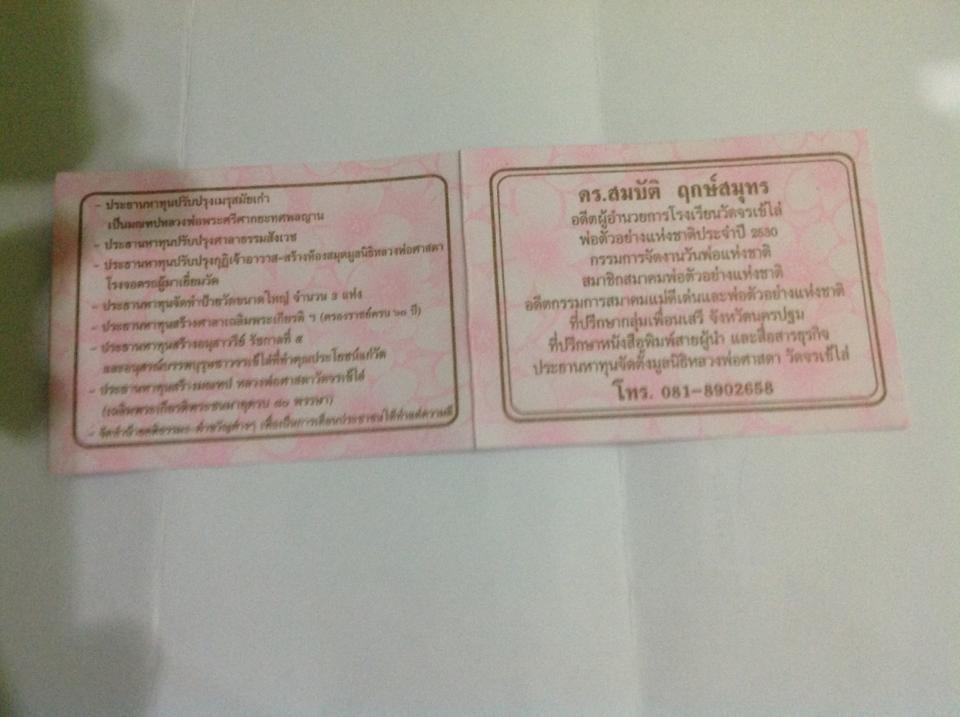 - ประธานหาทุนปรับปรุงเมรุสมัยเก่า
เป็นมณฑปหลวงพ่อพระศรีศากยะทศพลญาน
- ประธานหาทุนปรับปรุงศาลาธรรมสังเวช
- ประธานหาทุนปรับปรุงกุฏิเจ้าอาวาส-สร้างห้องสมุดมูลนิธิหลวงพ่อศาสดา
โรงจอดรถผู้มาเยี่ยมวัด
- ประธานหาทุนจัดทำป้ายวัดขนาดใหญ่ จำนวน 3 แห่ง
- ประธานหาทุนสร้างศาลาเฉลิมพระเกียรติ ฯ (ครองราชย์ครบ ๖๐ ปี)
- ประธานหาทุนสร้างอนุสาวรีย์ รัชกาลที่ ๕
และอนุสรณ์บรรพบุรุษชาวจรเข้ไล่ที่ทำคุณประโยชน์แก่วัด
- ประธานหาทุนสร้างมณฑป หลวงพ่อศาสดาวัดจรเข้ไล่
(เฉลิมพระเกียรติพระชนมายุครบ ๘๐ พรรษา)
- จัดทำป้ายคติธรรม คำขวัญต่างๆ เพื่อเป็นการเตือนประชาชนได้ทำแต่ความดี
ดร.สมบัติ ฤกษ์สมุทร
อดีตผู้อำนวยการโรงเรียนวัดจรเข้ไล่
พ่อตัวอย่างแห่งชาติประจำปี 2530
กรรมการจัดงานวันพ่อแห่งชาติ
สมาชิกสมาคมพ่อตัวอย่างแห่งชาติ
อดีตกรรมการสมาคมแม่ดีเด่นและพ่อตัวอย่างแห่งชาติ
ที่ปรึกษากลุ่มเพื่อนเสรี จังหวัดนครปฐม
ที่ปรึกษาหนังสือพิมพ์สายผู้นำ และสื่อสารธุรกิจ
ประธานหาทุนจัดตั้งมูลนิธิหลวงพ่อศาสดา วัดจรเข้ไล่
โทร. 081-8902658